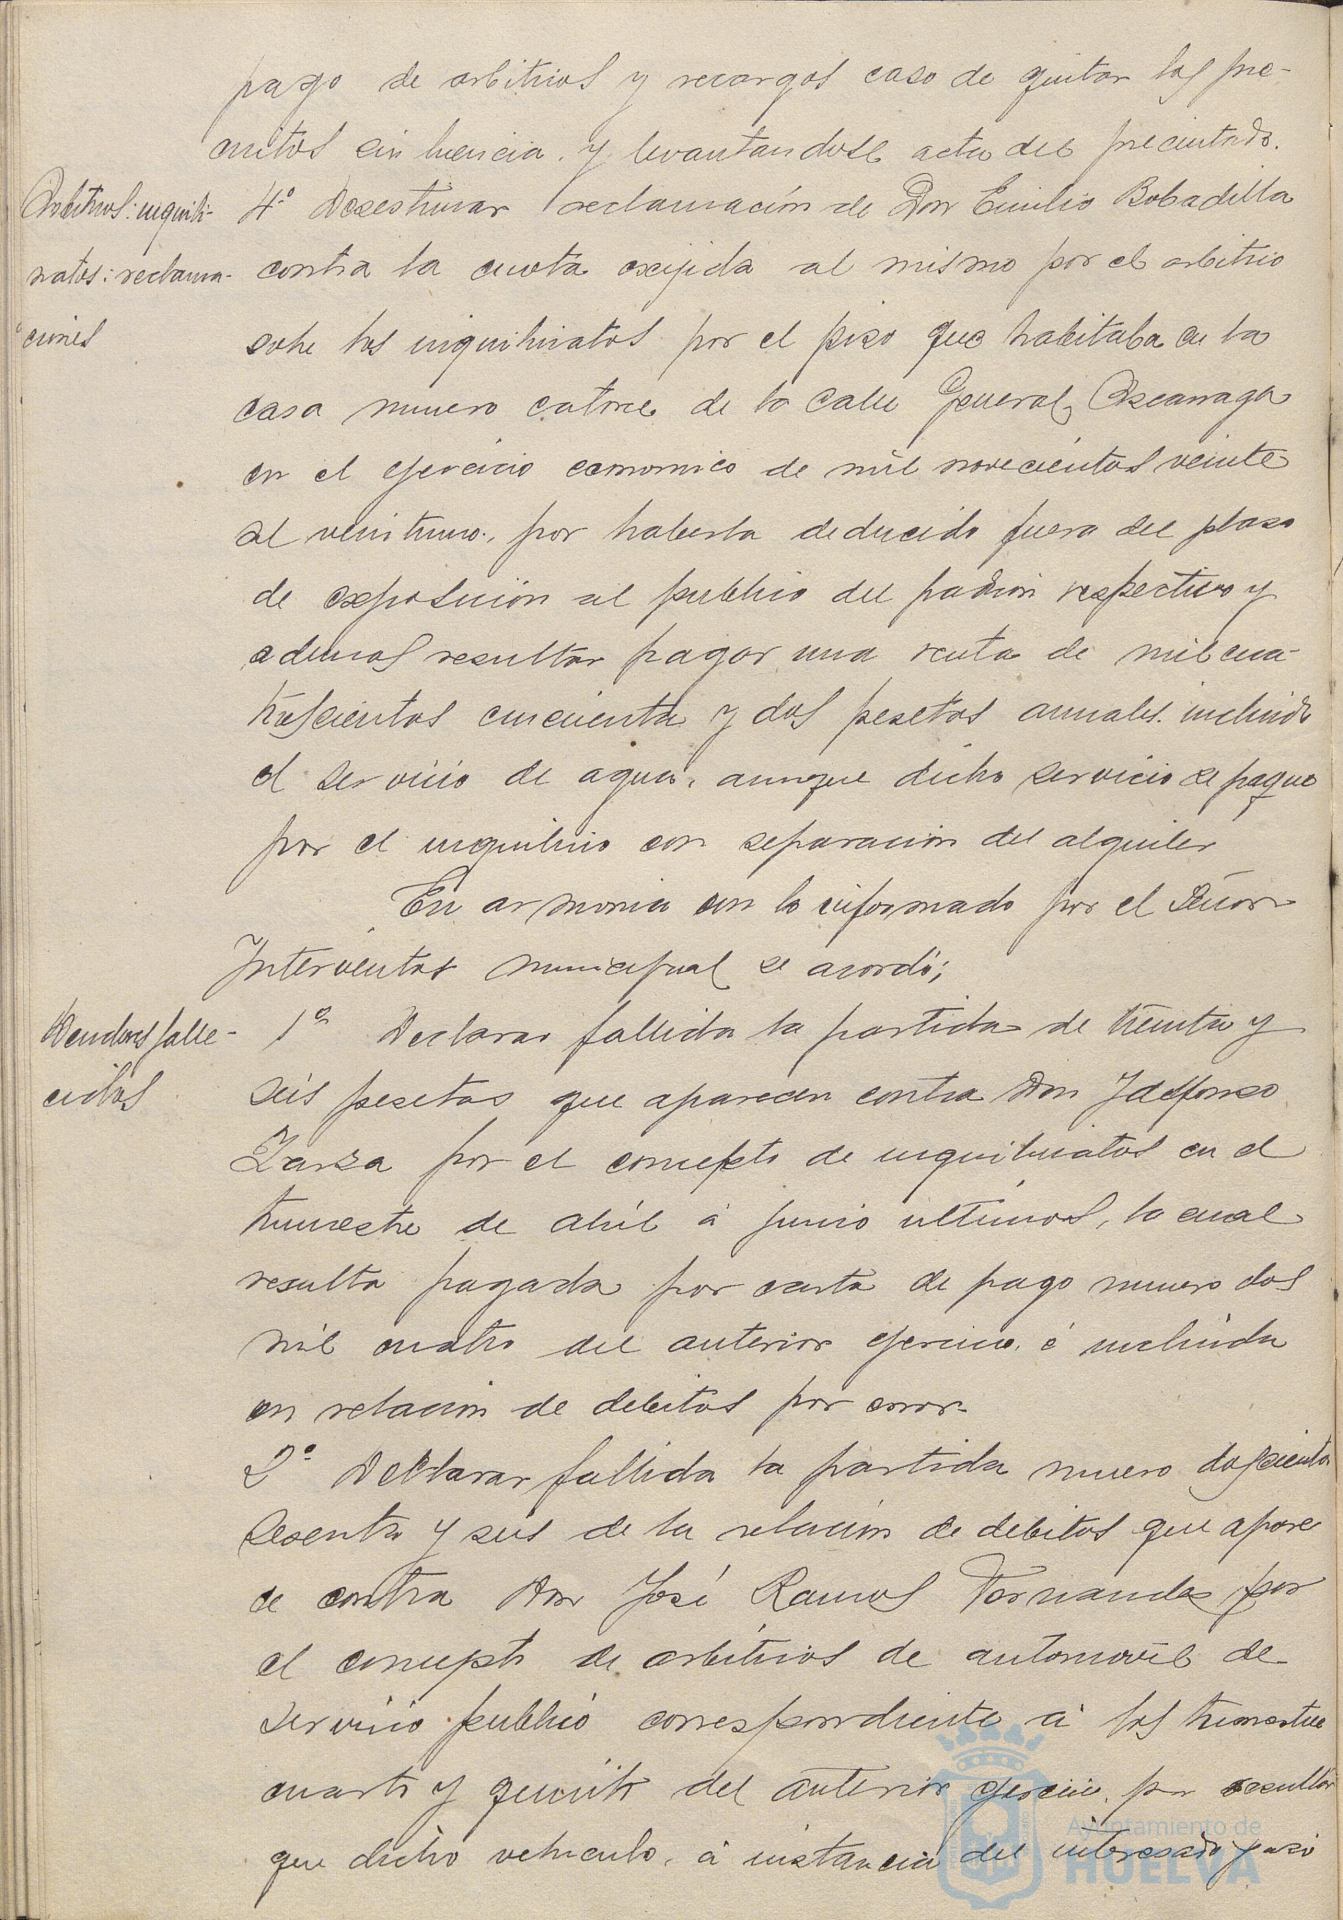 pago de arbitrios y recargos caso de quitar los pre-
cintos sin licencia, y levantandose acta del precintado.
Arbitrios: inquili-
natos: reclama-
ciones
4º Desestimar reclamación de Don Emilio Bobadilla
contra la cuota exijida al mismo por el arbitrio
sobre los inquilinatos por el piso que habitaba en la
casa numero catorce de la calle General Azcarraga
en el ejercicio economico de mil novecientos veinte
al veintiuno, por haberla deducido fuera del plazo
de exposición al publico del padrón respectivo y
ademas resultar pagar una renta de mil cua-
trescientos cincuenta y dos pesetas anuales incluido
el servicio de agua, aunque dicho servicio se pague
por el inquilino con separacion del alquiler
En armonia con lo informado por el Señor
Interventor municipal se acordó;
Deudores falle-
cidos
1º Declarar fallida la partida de treinta y
seis pesetas que aparecen contra Don Ildefonso
Zarza por el concepto de inquilinatos en el
trimestre de Abril á junio ultimos, la cual
resulta pagada por carta de pago numero dos
mil cuatro del anterior ejercicio, é incluida
en relación de debitos por error
2º Declarar fallida la partida numero doscientos
sesenta y seis de la relación de debitos que apare
ce contra Don José Ramos Fernandez por
el concepto de arbitrios de automovil de
servicio publico correspondiente á los trimestre
cuarto y quinto del anterior ejercicio, por resultar
que dicho vehiculo, á instancia del interesado y asi
Ayuntamiento de
HUELVA